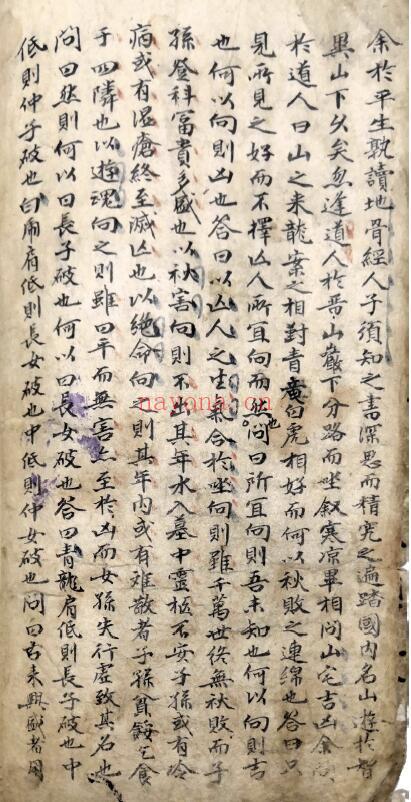 余於平生孰讀地骨經人子須知之書深思而精究之遍踏國內名山遊於智
異山下久矣忽逢道人於晋山巖下分路而坐叙寒凉畢相問山宅吉凶余問
於道人曰山之来龍案之相對青龍白虎相好而何以秋敗之連綿也答曰只
見所見之好而不擇凶人所宜向而然也問曰所宜向則吾未知也何以向則吉
也何以向則凶也答曰以凶人之生氣合於坐向則雖千萬世終無秋敗而子
孫登科冨貴多盛也以秋害向則不出其年水入墓中霊柩不安子孫或有冷
病或有湿瘡終至滅亡也以絶命向之則其年內或有难散者子孫貧餒乞食
于四隣也以遊魂向之則雖曰平而無害亦至於凶而女孫失行虛致其名也
問曰然則何以曰長子破也何以曰長女破也答曰青龍肩低則長子破也中
低則仲子破也白虎肩低則長女破也中低則仲女破也問曰古来興盛者用
nayona.cn